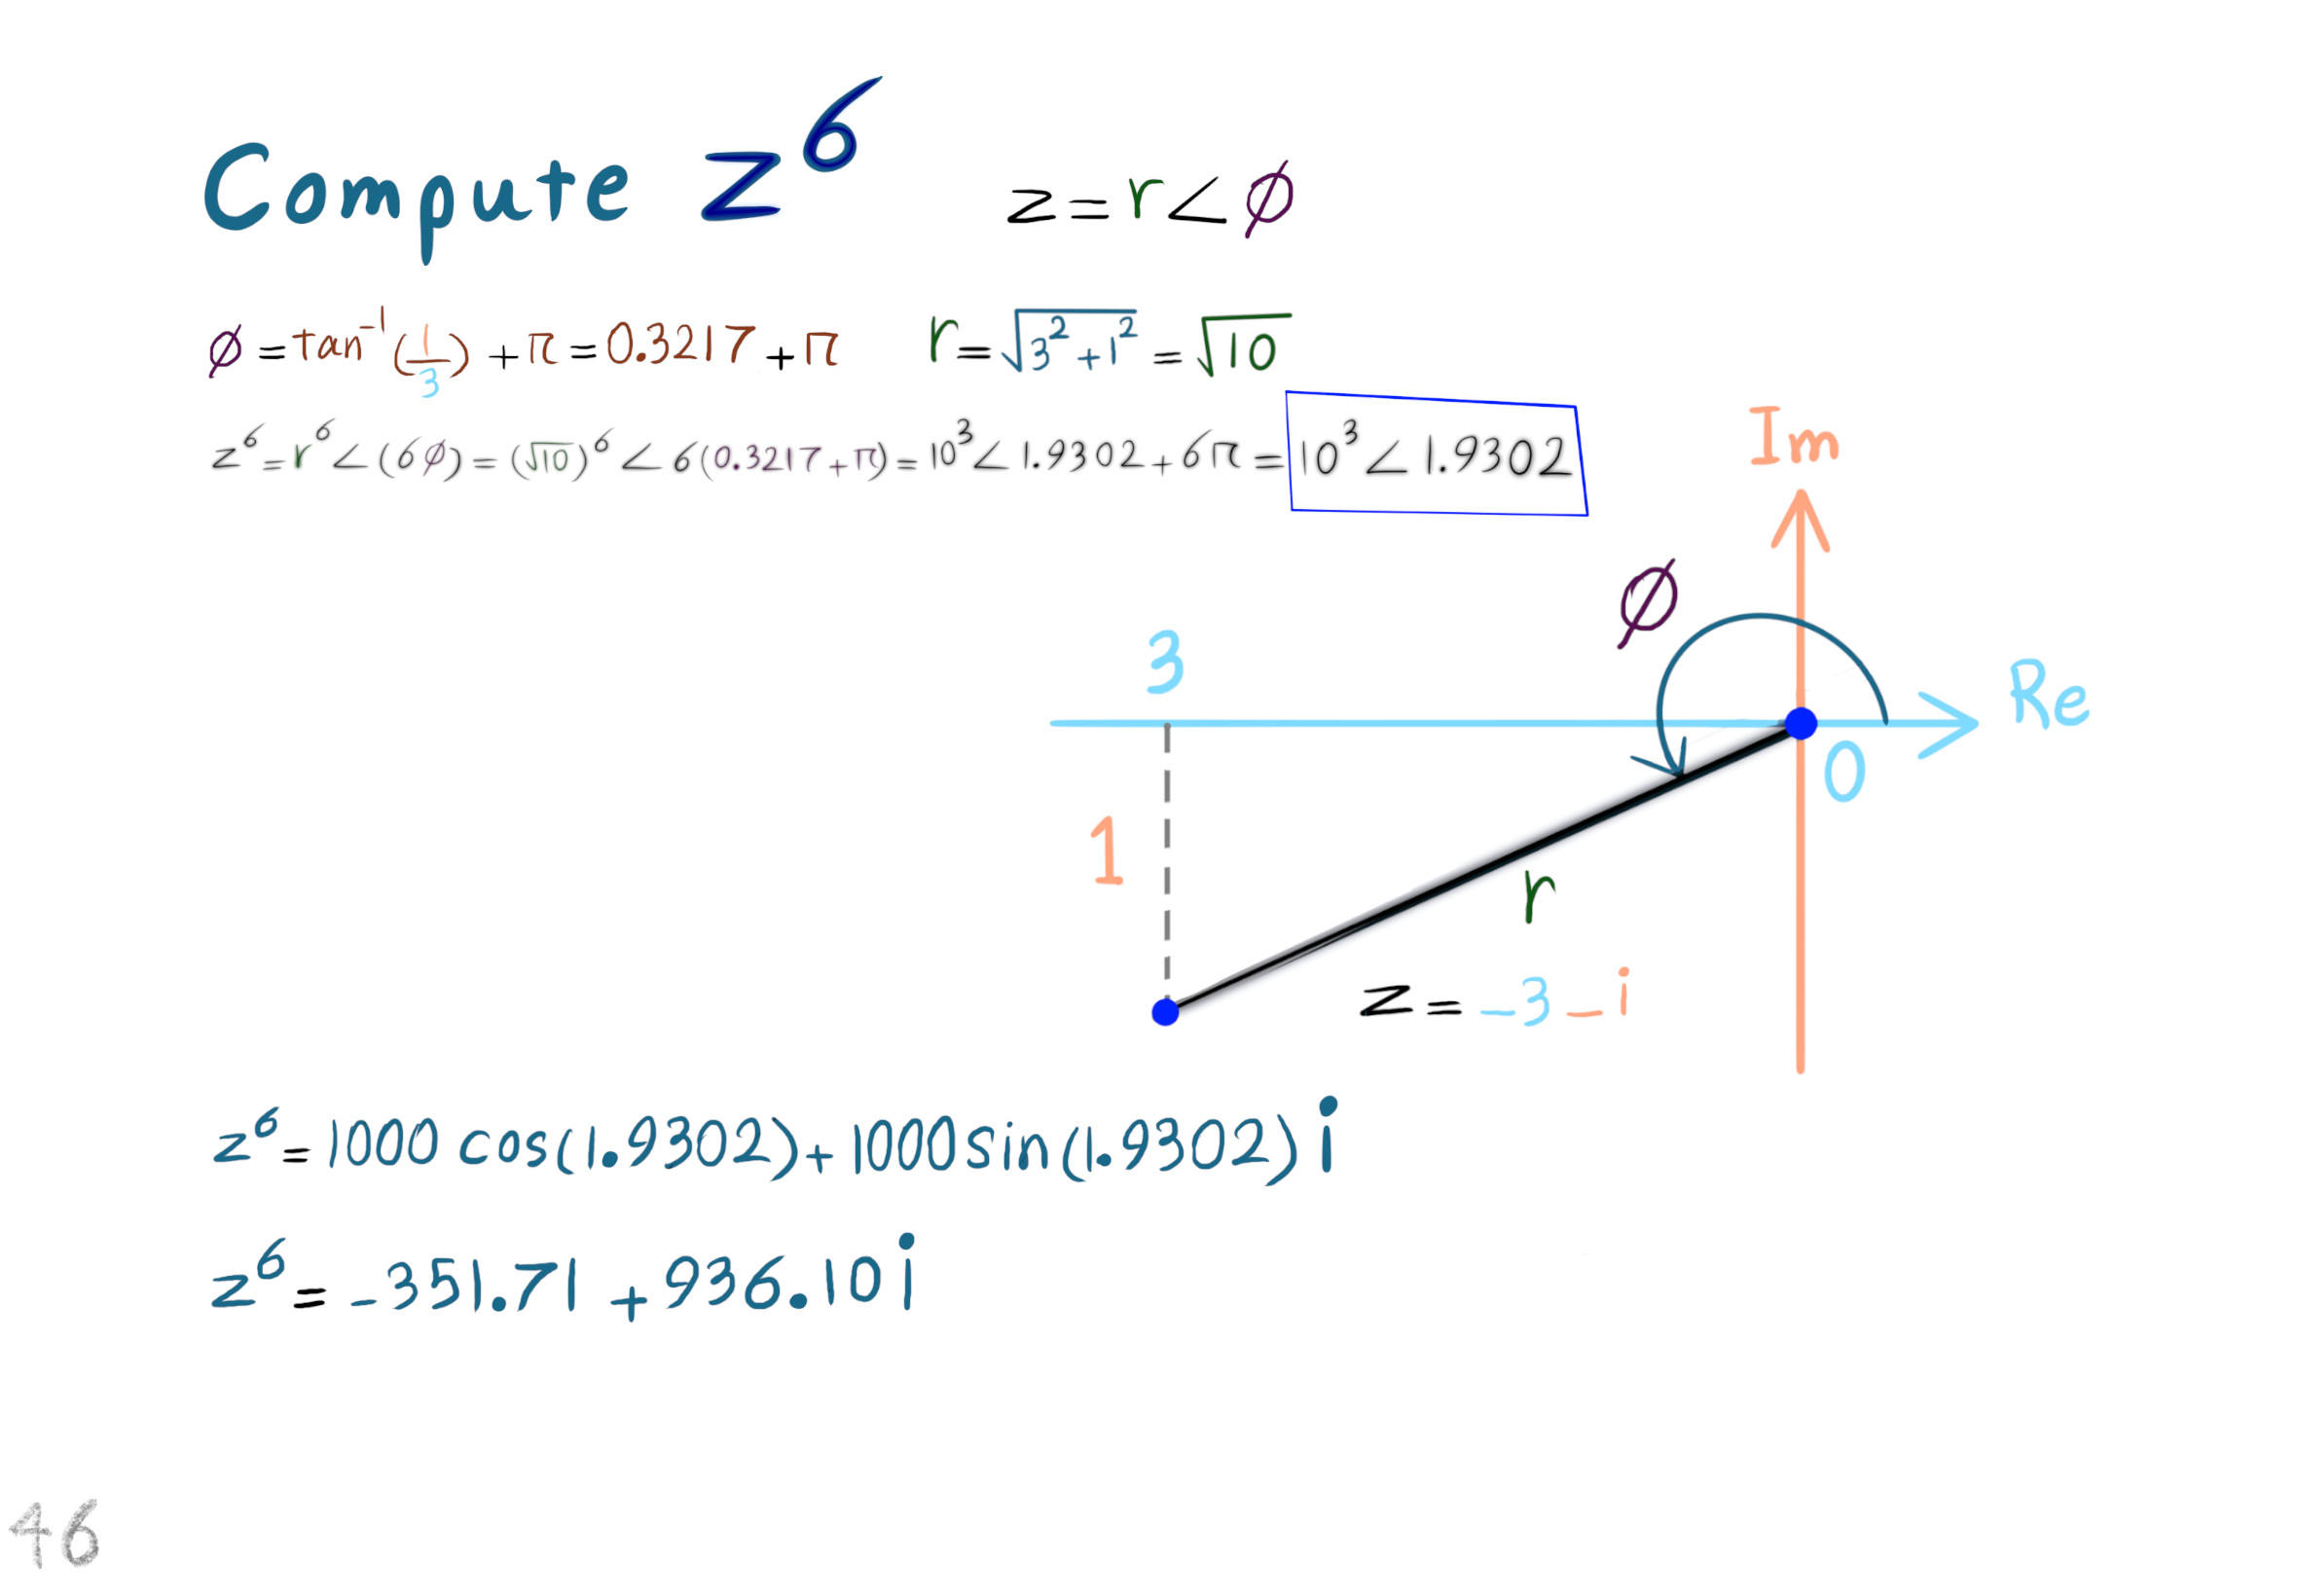 Compute z⁶ z = r∠∅
∅ = tan⁻¹(1/3) + π = 0.3217 + π r = √(3² + 1²) = √10
z⁶ = r⁶∠(6∅) = (√10)⁶∠6(0.3217 + π) = 10³∠1.9302 + 6π = 10³∠1.9302
Im
∅
3
Re
0
1
r
z = -3 - i
z⁶ = 1000 cos(1.9302) + 1000 sin(1.9302) i
z⁶ = -351.71 + 936.10 i
46